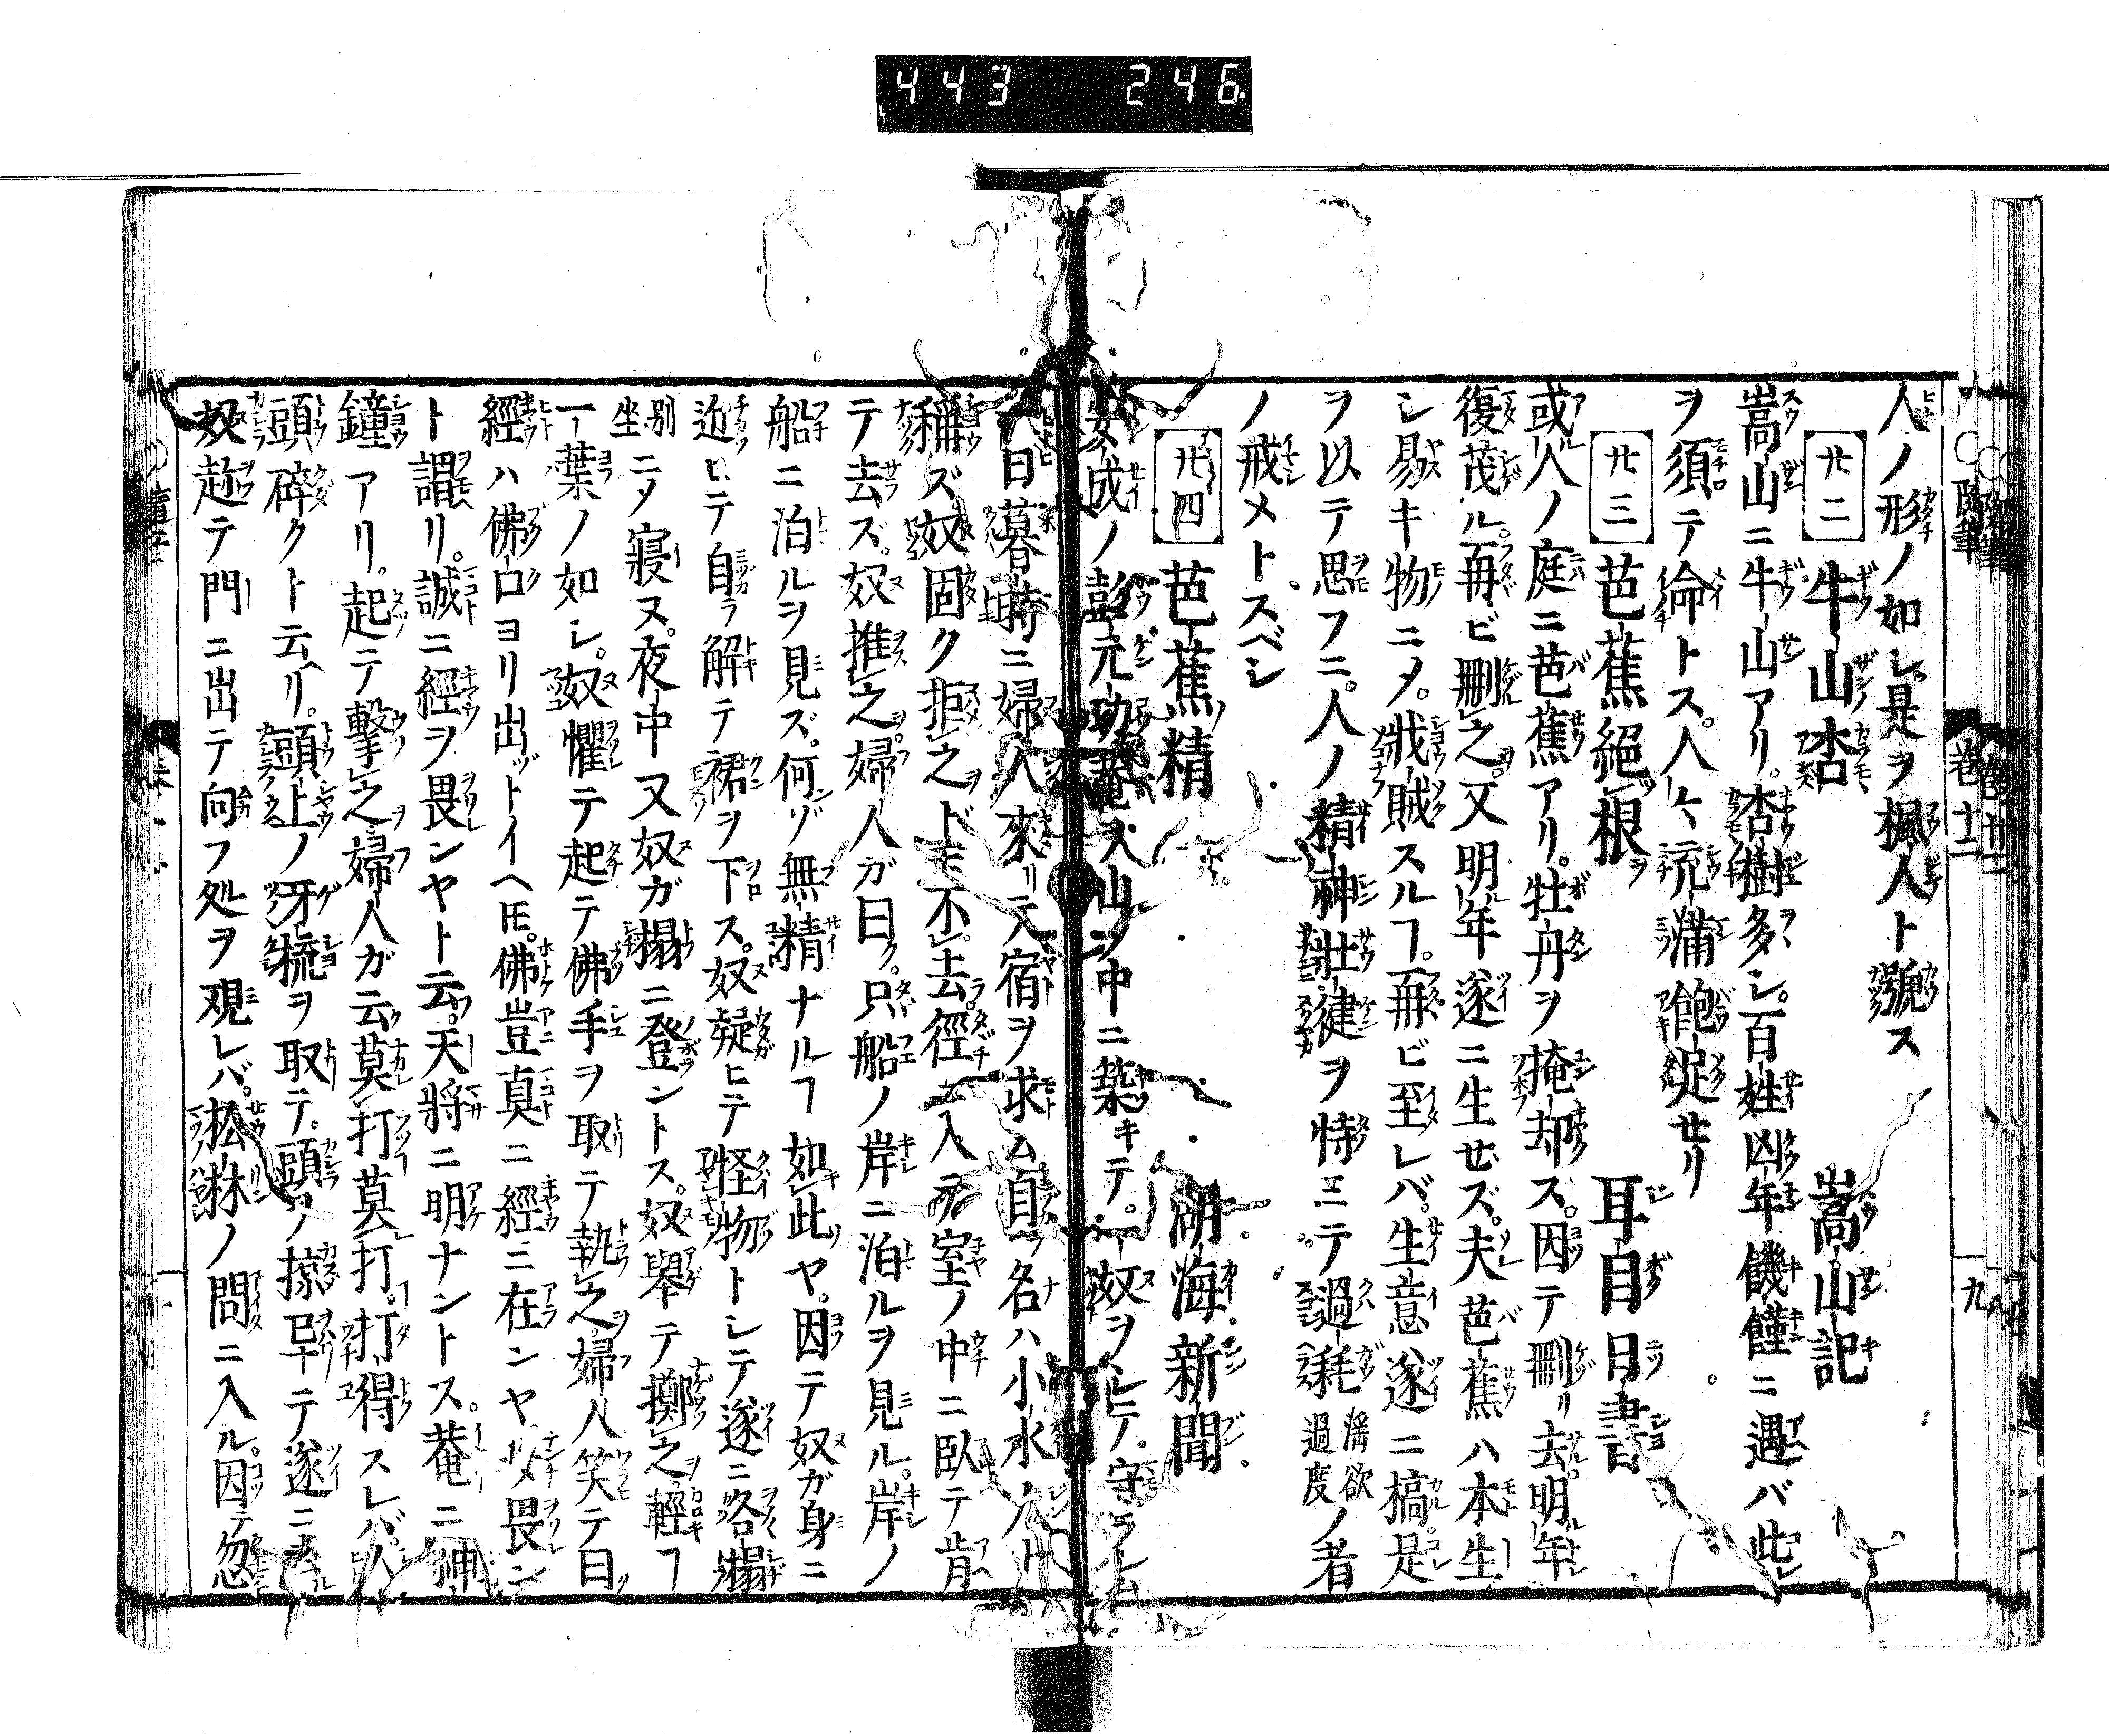 443 246
人ノ形ノ如シ是ヲ楓人ト號ス
廿二 牛山杏 嵩山記
嵩山ニ牛山アリ。杏樹多シ。百姓凶年饑饉ニ遇バ此
ヲ須テ命トス。人々流蒲飽足セリ
廿三 芭蕉絕根 耳目日書
或人ノ庭ニ芭蕉アリ。牡丹ヲ掩却ス。因テ刪リ去。明年
復茂ル。再ビ刪之。又明年遂ニ生ゼズ。夫芭蕉ハ本生
シ易キ物ニメ。戕賊スルヿ。再ビ至レバ。生意遂ニ槁。是
ヲ以テ思フニ。人ノ精神壯健ヲ恃ミテ過耗 滛欲過度 ノ者
ノ戒メトスベシ
廿四 芭蕉精 湖海新聞
安成ノ彭元功菴ヲ山ノ中ニ築キテ。一奴ヲシテ守ラシム
一日暮時ニ婦人來リテ宿ヲ求ム自ラ名ハ小水人ト
稱ズ奴固ク拒之ドモ不去。徑ニ入テ室ノ中ニ臥テ肯
テ去ズ。奴推之。婦人ガ曰ク。只船ノ岸ニ泊ルヲ見ル。岸ノ
船ニ泊ルヲ見ズ。何ゾ無精ナルヿ如此ヤ。因テ奴ガ身ニ
近ヒテ自ラ解テ裙ヲ下ス。奴疑ヒテ怪物トシテ遂ニ各榻
別坐ニメ寢ヌ。夜中又奴ガ榻ニ登ントス。奴擧テ擲之。輕ヿ
一葉ノ如シ。奴懼テ起テ佛手ヲ取テ執之。婦人笑テ曰
經ハ佛口ヨリ出ットイヘ𪜈。佛豈真ニ經ニ在ンヤ以メ畏ン
ト謂リ。誠ニ經ヲ畏ンヤト云。天將ニ明ナントス。菴ニ神
鐘アリ。起テ擊之。婦人ガ云莫打莫打。打得スレバ。人
頭碎クト云ヘリ。頭上ノ牙梳ヲ取テ。頭ヲ掠畢テ遂ニ去ル
奴趂テ門ニ出テ向フ処ヲ覌レバ。松林ノ間ニ入ル。因テ忽
隨筆 卷十二 九